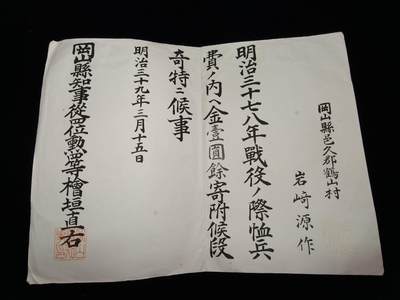 岡山縣邑久郡鶴山村
岩﨑源作
明治三十七八年戰役ノ際恤兵
費ノ内ヘ金壹圓餘寄附候段
奇特ニ候事
明治三十九年三月十五日
岡山縣知事從四位勳四等檜垣直右